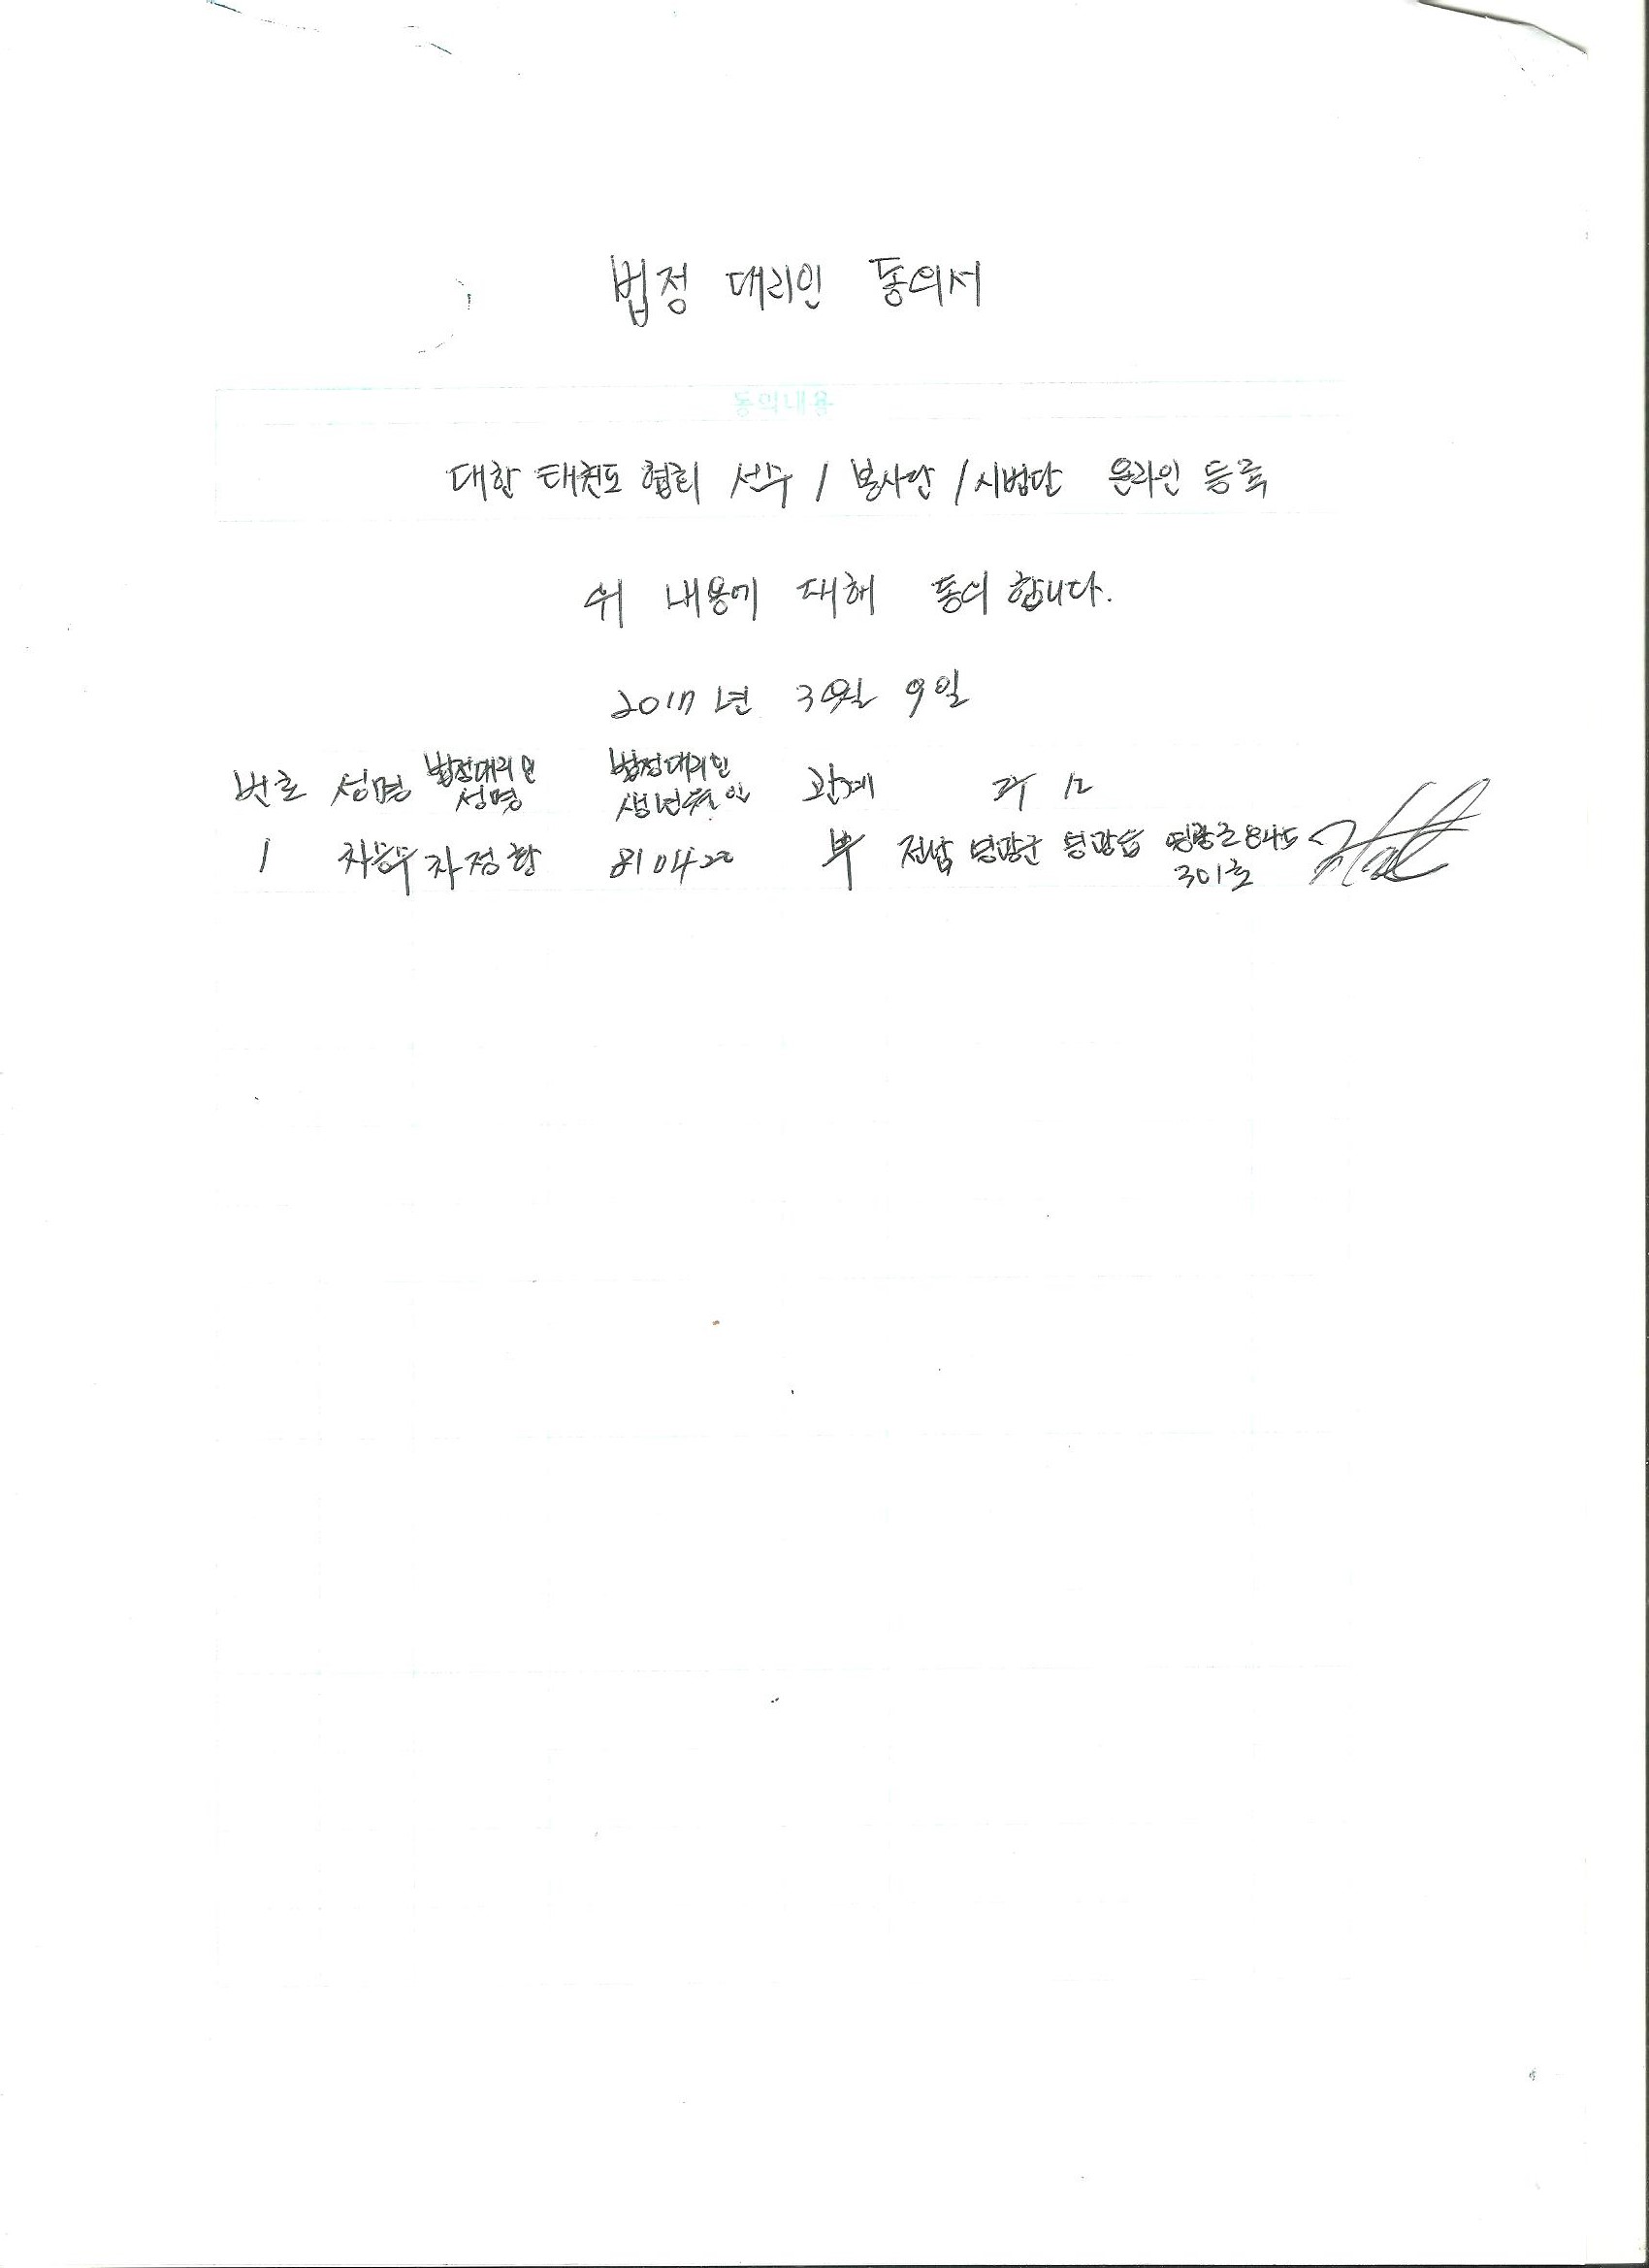 법정 대리인 동의서
동의내용
대한 태권도 협회 선수 / 봉사단 / 시범단 온라인 등록
위 내용에 대해 동의 합니다.
2017년 3월 9일
번호 성명 법정대리인 성명 법정대리인 생년월일 관계 주소
1 차정항 810420 부 전남 영광군 영광읍
301호